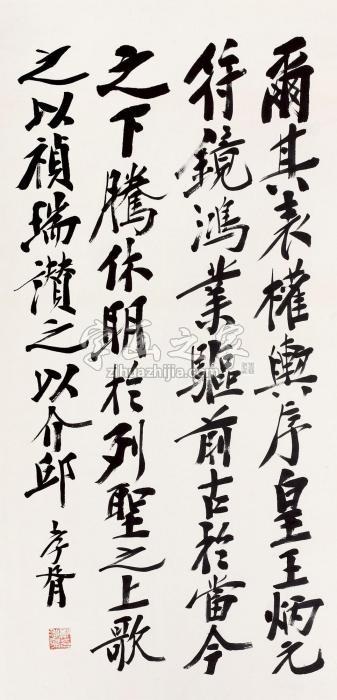 爾其表權輿序皇王炳元
符鏡鴻業驅前古於當今
之下騰休明於列聖之上歌
之以禎瑞讚之以介邱
孝胥
字画之家
zihuazhijia.com